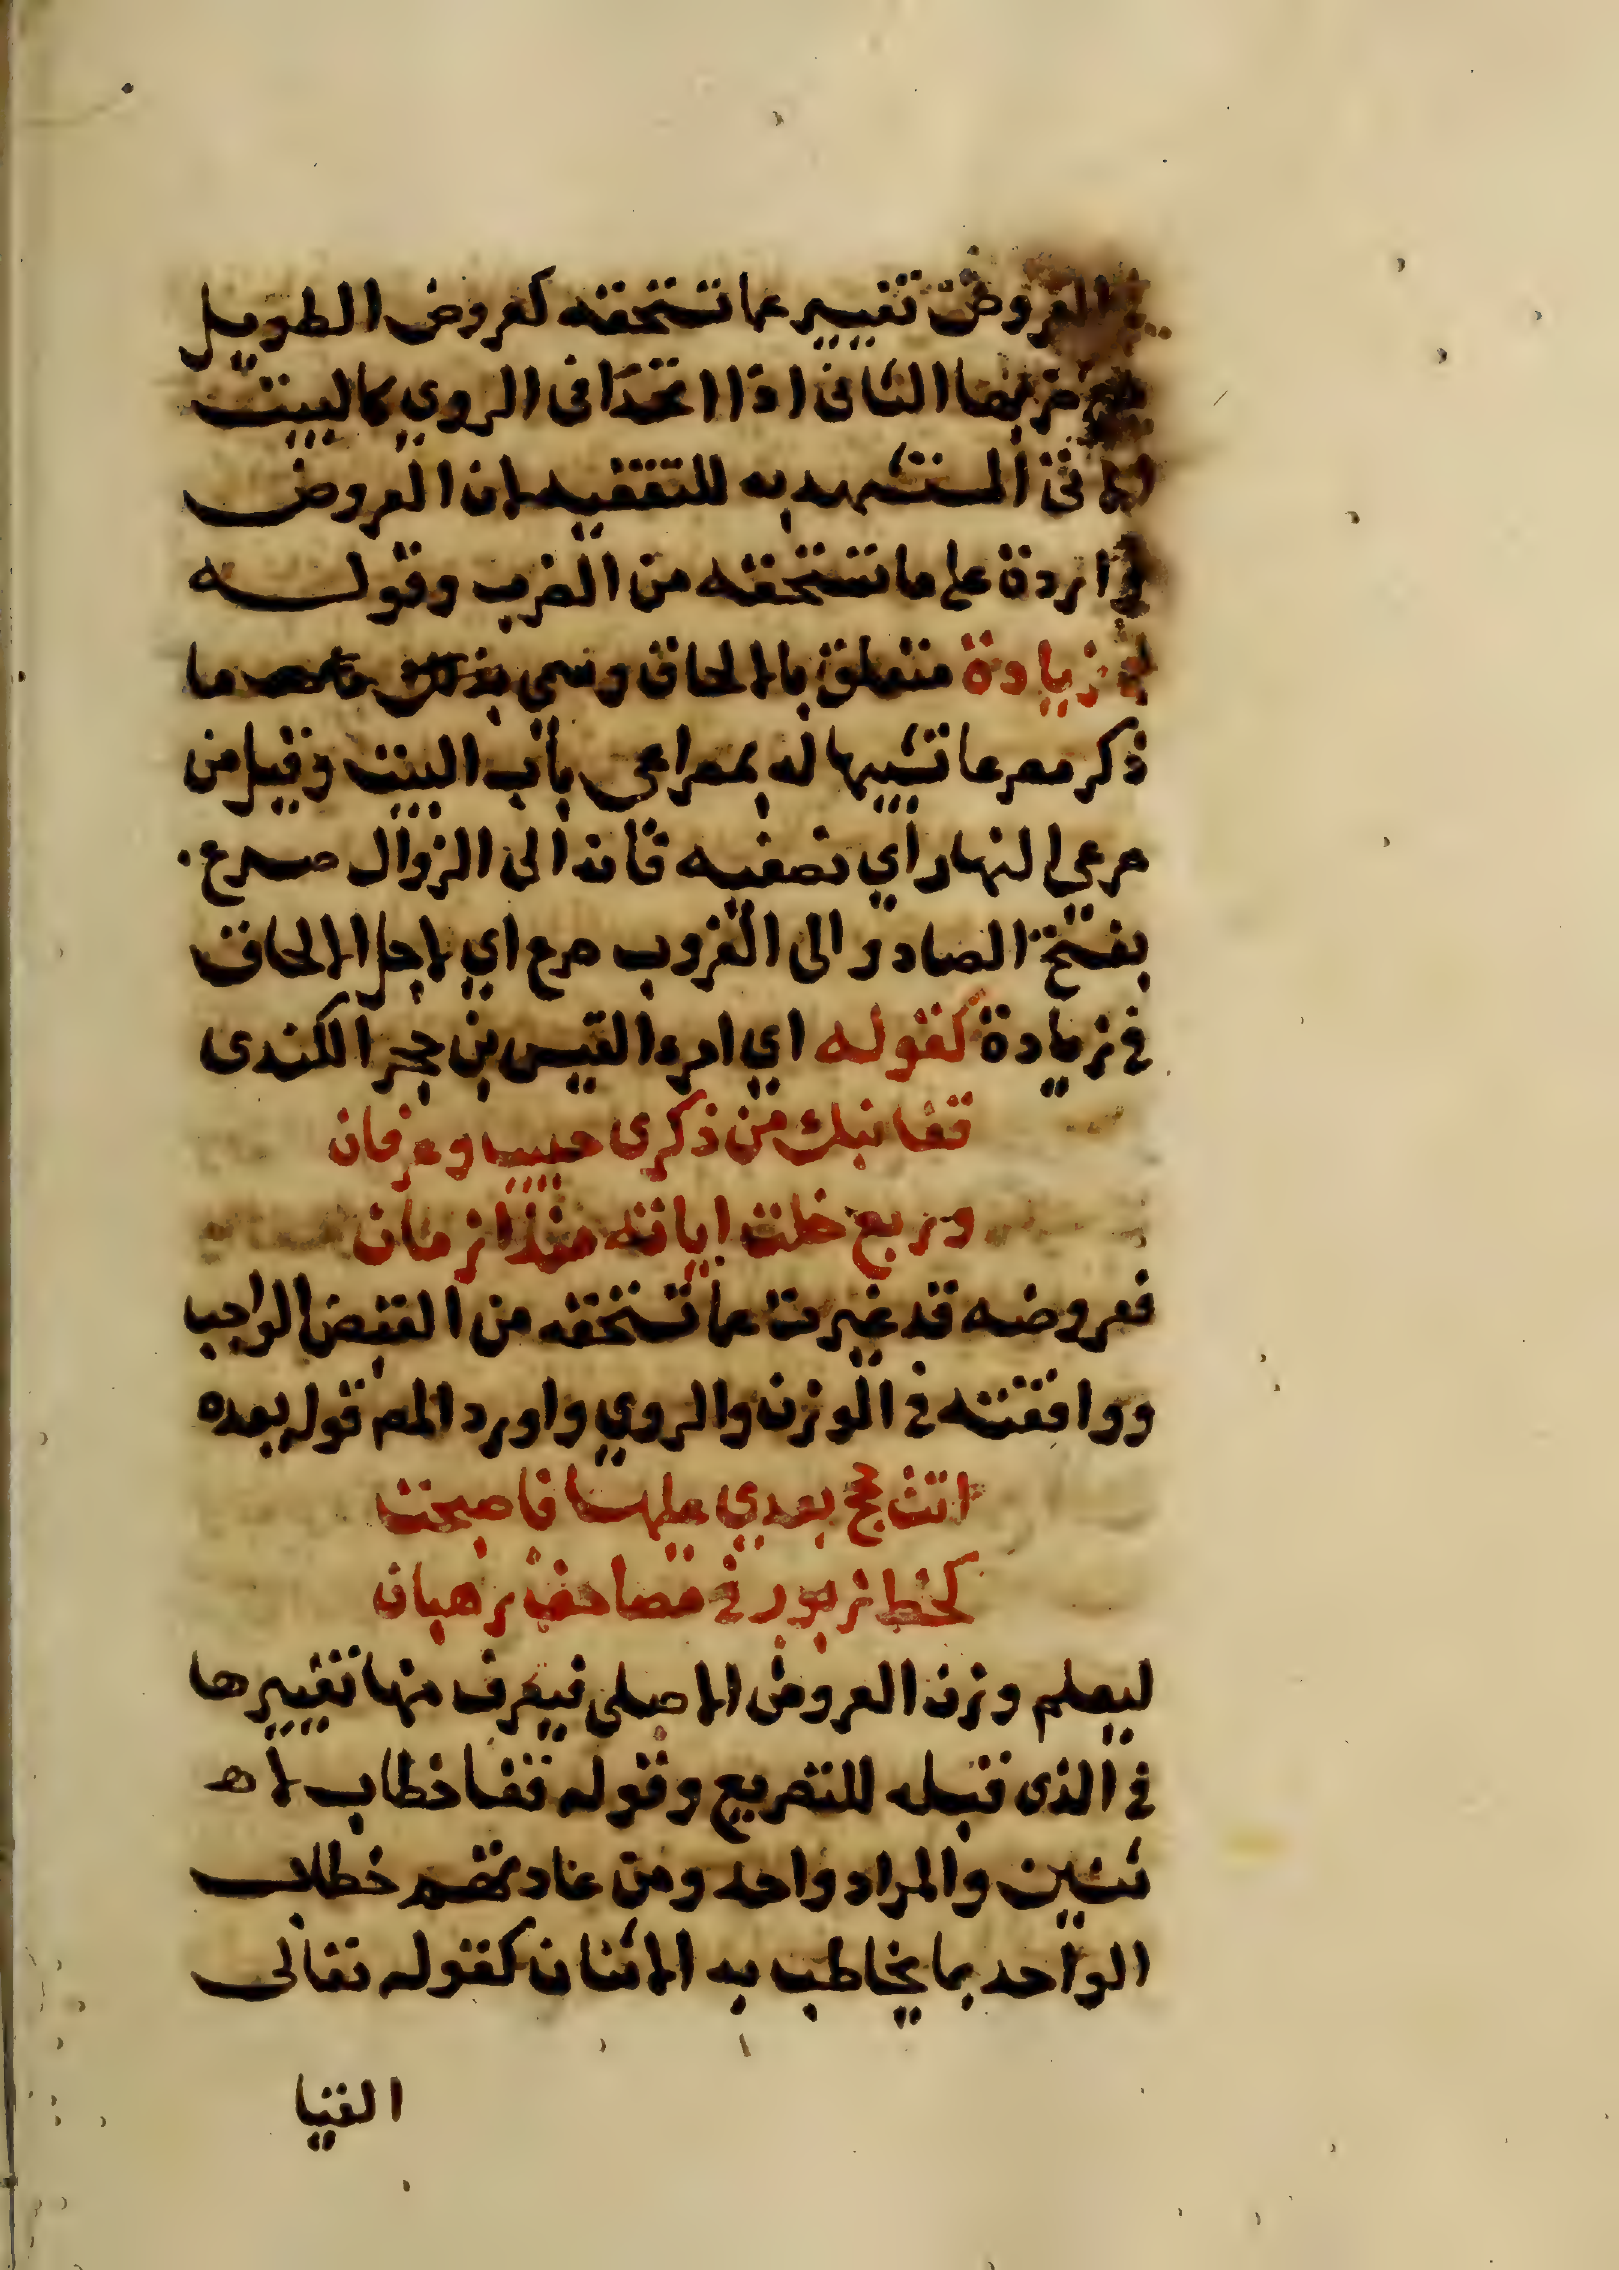 العروض تغيير عما تستحقه كعروض الطويل
مع ضربها الثاني اذا اتحدا فى الروي كالبيت
الاتي المستشهد به للتقفيه لان العروض
واردة على ما تستحقه من الضرب وقوله
لزيادة متعلق بالالحاق وسمى ما
ذكر مصرعا تشبيها له بمصراعى باب البيت وقيل من
صرعي النهار اي نصفيه فانه الى الزوال صرع
بفتح الصاد والى الغروب صرع اي لاجل الالحاق
في زيادة كقوله اي امرء القيس بن حجر الكندى
قفا نبك من ذكرى حبيب وعرفان
وربع خلت اياته منذ ازمان
فعروضه قد غيرت عما تستحقه من القبض الواجب
ووافقته في الوزن والروي واورد المص قوله بعده
اتت حجج بعدي عليها فاصبحت
كخط زبور في مصاحف رهبان
ليعلم وزن العروض الاصلى فيعرف منها تغييرها
في الذى قبله للتصريع وقوله قفا خطاب لا
ثنين والمراد واحد ومن عادتهم خطاب
الواحد بما يخاطب به الاثنان كقوله تعالى
القيا